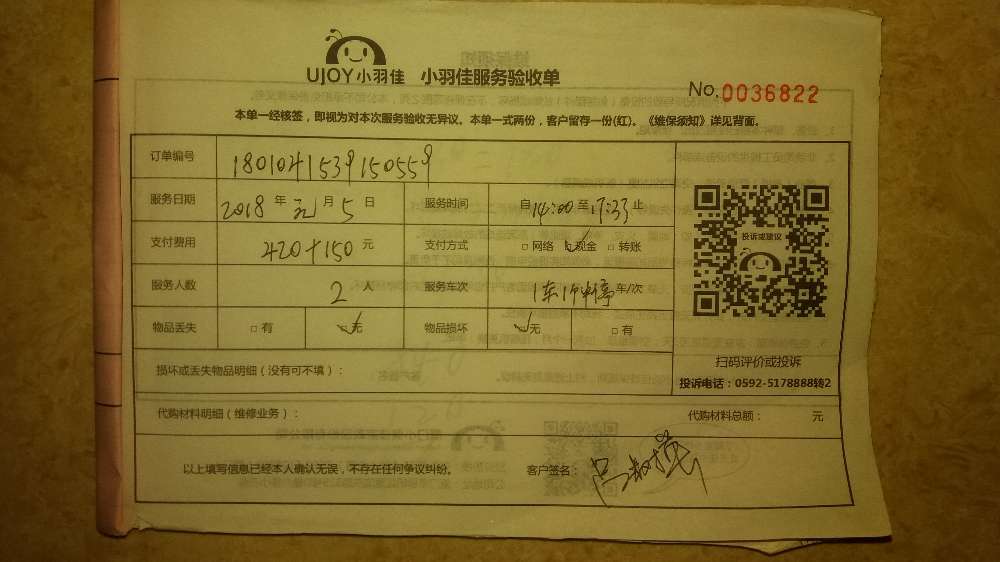 UJOY小羽佳 小羽佳服务验收单
No.0036822
本单一经核签，即视为对本次服务验收无异议。本单一式两份，客户留存一份(红)。《维保须知》详见背面。
订单编号 180104153915055９
服务日期 2018 年 元 月 5 日 服务时间 自 14:00 至 17:33 止
支付费用 420+150 元 支付方式 □ 网络 ☑ 现金 □ 转账
服务人数 2 人 服务车次 1车1 停 车/次
物品丢失 □ 有 ☑ 无 物品损坏 ☑ 无 □ 有
投诉或建议
扫码评价或投诉
投诉电话：0592-5178888转2
损坏或丢失物品明细（没有可不填）：
代购材料明细（维修业务）： 代购材料总额： 元
以上填写信息已经本人确认无误，不存在任何争议纠纷。 客户签名：